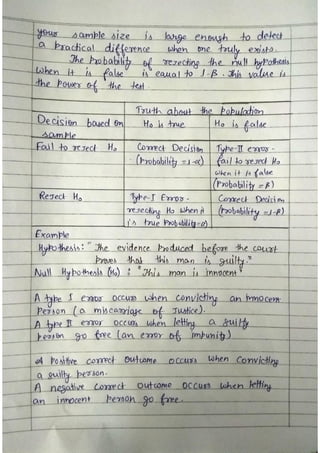 your sample size is large enough to detect
a practical difference when one truly exists.
The Probability of rejecting the null hypothesis
when it is false is equal to 1-β. This value is
the Power of the test.
Truth about the Population
Decision based on sample
H₀ is true
H₀ is false
Fail to reject H₀
Correct Decision
(Probability = 1-α)
Type-II error-
fail to reject H₀
when it is false
(Probability = β)
Reject H₀
Type-I Error-
rejecting H₀ when it
is true Probability=α)
Correct Decision
(Probability = 1-β)
Example
Hypothesis: "The evidence Produced before the court
Proves that this man is guilty."
Null Hypothesis (H₀) : "This man is innocent"
A type I error occurs when convicting an innocent
Person (a miscarriage of Justice).
A type II error occurs when letting a guilty
Person go free (an error of impunity)
A Positive correct outcome occurs when convicting
a guilty person.
A negative correct outcome occurs when letting
an innocent Person go free.